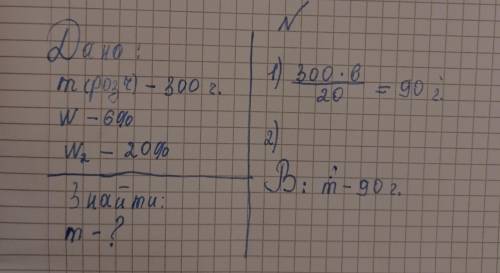 N
Дано:
m(розч) – 300 г.
W – 6%
W₂ – 20%
Знайти:
m – ?
1) 300 · 6 / 20 = 90 г.
2)
В: m – 90 г.